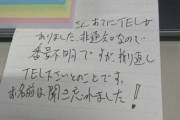 さんあてにTELが
ありました。非通知なので
番号不明ですが、折り返し
TEL下さいとのことです。
お名前は聞き忘れました!!